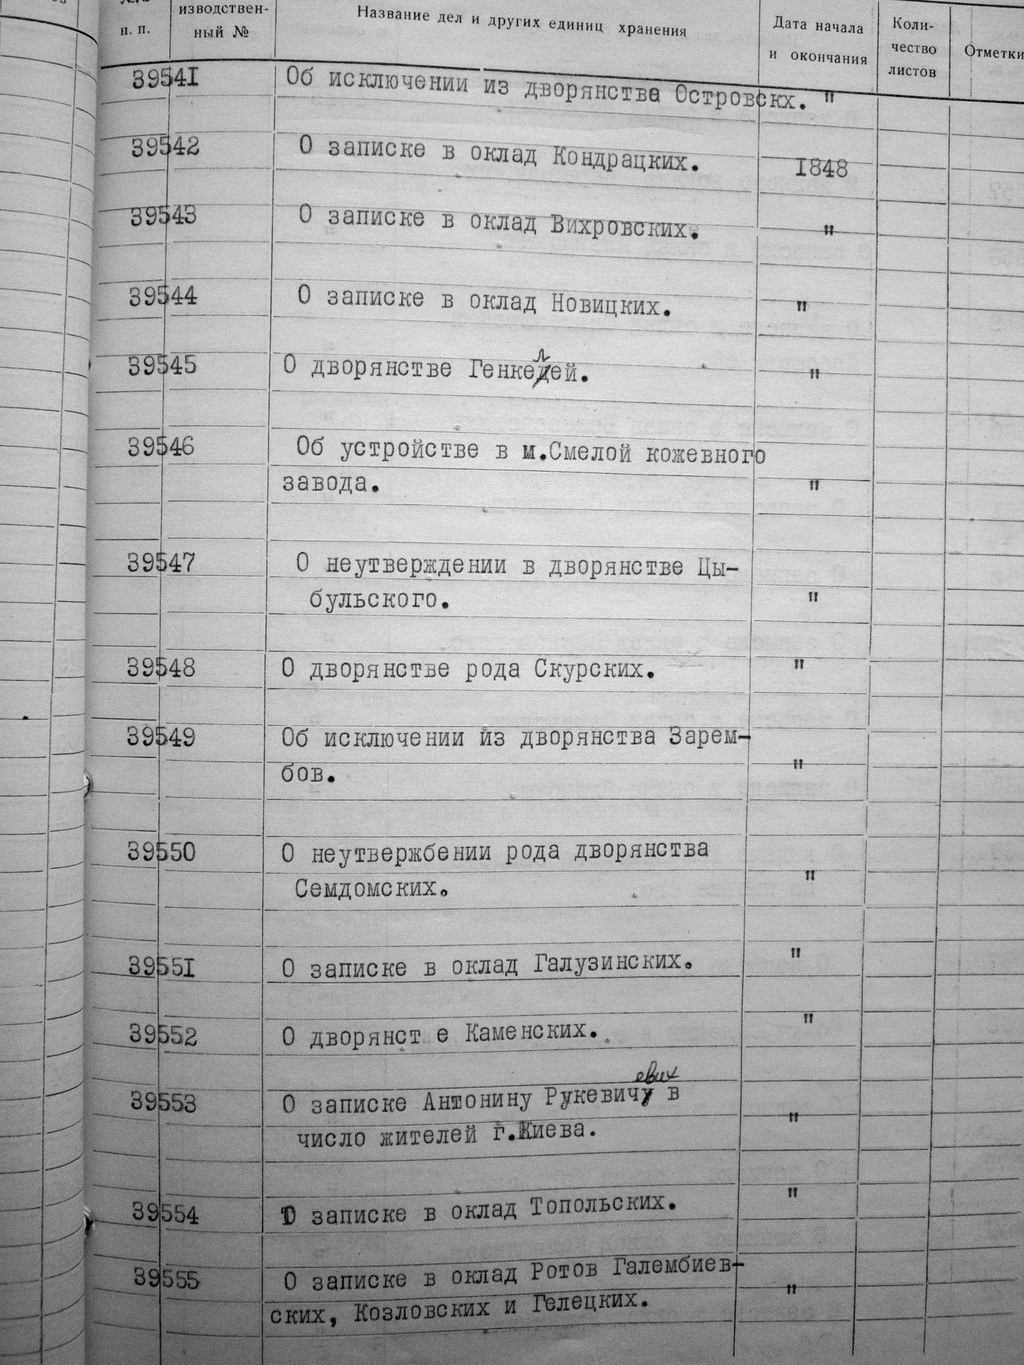 п. п.
изводствен-
ный №
Название дел и других единиц хранения
Дата начала
и окончания
Коли-
чество
листов
Отметки
39541 Об исключении из дворянства Островскх. "
39542 О записке в оклад Кондрацких. 1848
39543 О записке в оклад Вихровских. "
39544 О записке в оклад Новицких. "
л
39545 О дворянстве Генкедей. "
39546 Об устройстве в м.Смелой кожевного
завода. "
39547 О неутверждении в дворянстве Цы-
бульского. "
39548 О дворянстве рода Скурских. "
39549 Об исключении из дворянства Зарем-
бов. "
39550 О неутвержбении рода дворянства
Семдомских. "
39551 О записке в оклад Галузинских. "
39552 О дворянст е Каменских. "
евич
39553 О записке Антонину Рукевичу в
число жителей г.Киева. "
39554 О записке в оклад Топольских. "
39555 О записке в оклад Ротов Галембиев-
ских, Козловских и Гелецких. "